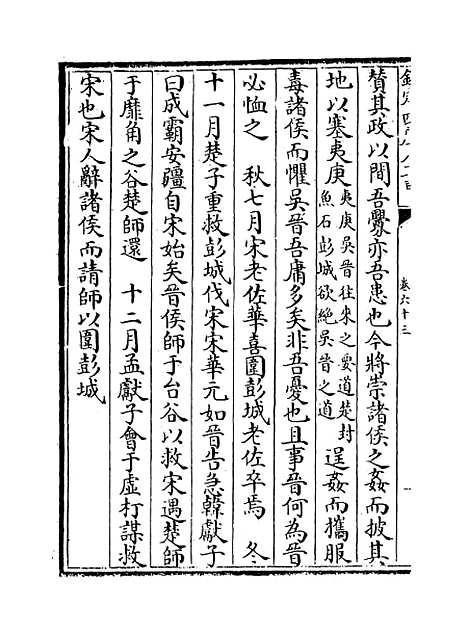 卷六十三
贊其政以間吾釁亦吾患也今將崇諸侯之姦而披其
地以塞夷庚
夷庚吳晉往來之要道楚封
魚石彭城欲絶吳晉之道
逞姦而攜服
毒諸侯而懼吳晉吾庸多矣非吾憂也且事晉何為晉
必恤之 秋七月宋老佐華喜圍彭城老佐卒焉 冬
十一月楚子重救彭城伐宋宋華元如晉告急韓獻子
曰成霸安疆自宋始矣晉侯師于台谷以救宋遇楚師
于靡角之谷楚師還 十二月孟獻子會于虛朾謀救
宋也宋人辭諸侯而請師以圍彭城